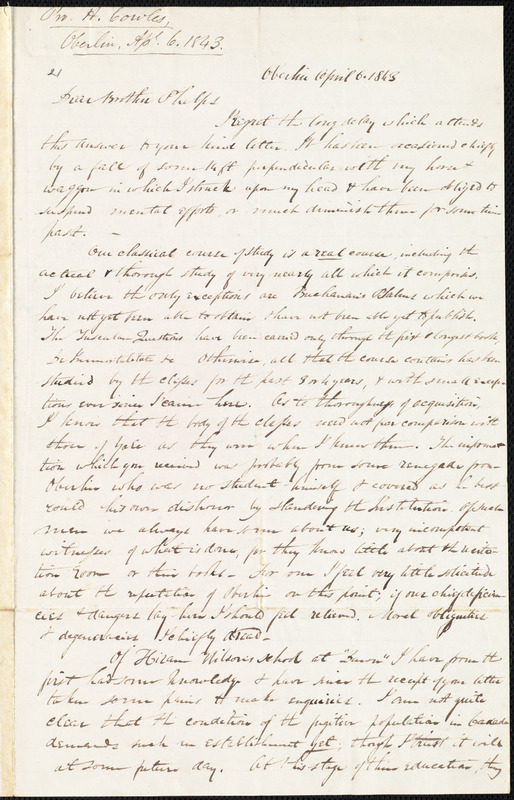 H. Cowles,
Oberlin, Apl. 6. 1843.
21
Oberlin April 6. 1843
Dear Brother Phelps
I regret the long delay which attends
this answer to your kind letter. It has been occasioned chiefly
by a fall of some feet perpendicular with my horse &
waggon in which I struck upon my head & have been obliged to
suspend mental efforts, or much diminish them for some time
past. —
Our classical course of study is a real course, including the
actual & thorough study of very nearly all which it comprises.
I believe the only exceptions are Buchanan's Psalms which we
have not yet been able to obtain & have not been able yet to publish.
The Tusculan Questions have been carried only through the first & longest book,
De Immortalitate &c Otherwise, all that the course contains has been
studied by the classes for the past 3 or 4 years, & with small excep-
tions ever since I came here. As to thoroughness of acquisition,
I know that the body of the classes need not fear comparison with
those of Yale as they were when I knew them. The informa-
tion which you received was probably from some renegade from
Oberlin who was no student himself & covered as he best
could his own dishonor by slandering the Institution. Of such
men we always have some about us; very incompetent
witnesses of what is done, for they know little about the recita-
tion Room or their books — For one I feel very little solicitude
about the reputation of Oberlin on this point; if our chief deficien-
cies & dangers lay here I should feel relieved. Moral obliquities
& degeneracies I chiefly dread —
Of Hiram Wilson's School at "Dawn" I have from the
first had some knowledge & have since the receipt of your letter
taken some pains to make enquiries. I am not quite
clear that the condition of the fugitive population in Canada
demands such an establishment yet; though I trust it will
at some future day. At this stage of their education, they